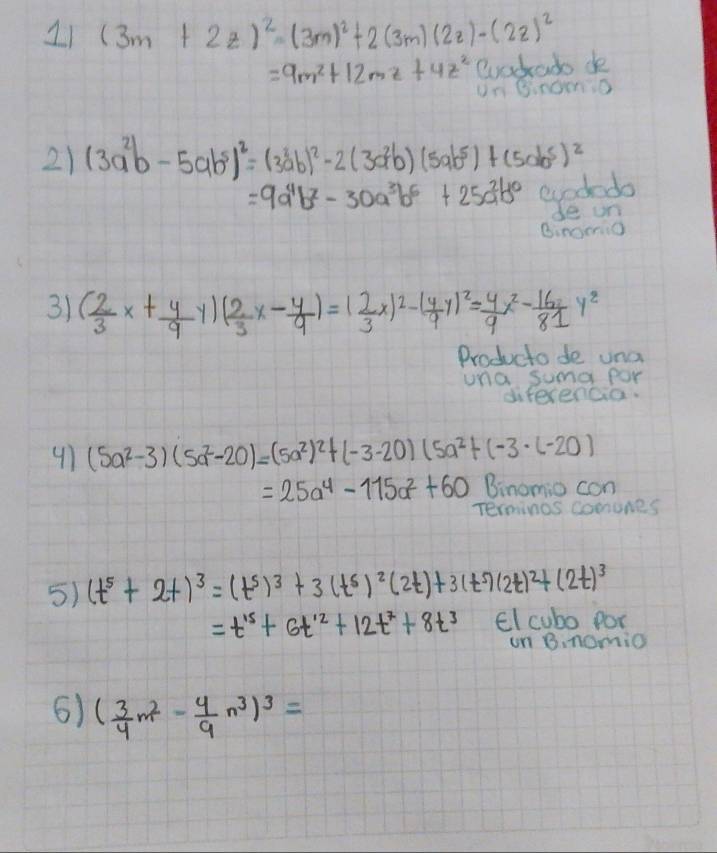 1) (3m + 2z)² = (3m)² + 2(3m)(2z) - (2z)²
= 9m² + 12mz + 4z² Cuadrado de
un Binomio
2) (3a²b - 5ab⁵)² = (3a²b)² - 2(3a²b)(5ab⁵) + (5ab⁵)²
= 9a⁴b² - 30a³b⁶ + 25a²b¹⁰ cuadrado
de un
Binomio
3) (2/3 x + 4/9 y)(2/3 x - 4/9) = (2/3 x)² - (4/9 y)² = 4/9 x² - 16/81 y²
Producto de una
una suma por
diferencia.
4) (5a²-3)(5a²-20) = (5a²)² + (-3-20)(5a² + (-3·(-20)
= 25a⁴ - 115a² + 60 Binomio con
Terminos comunes
5) (t⁵ + 2t)³ = (t⁵)³ + 3(t⁵)²(2t) + 3(t⁵)(2t)² + (2t)³
= t¹⁵ + 6t¹² + 12t⁷ + 8t³ El cubo por
un Binomio
6) (3/4 m² - 4/9 n³)³ =